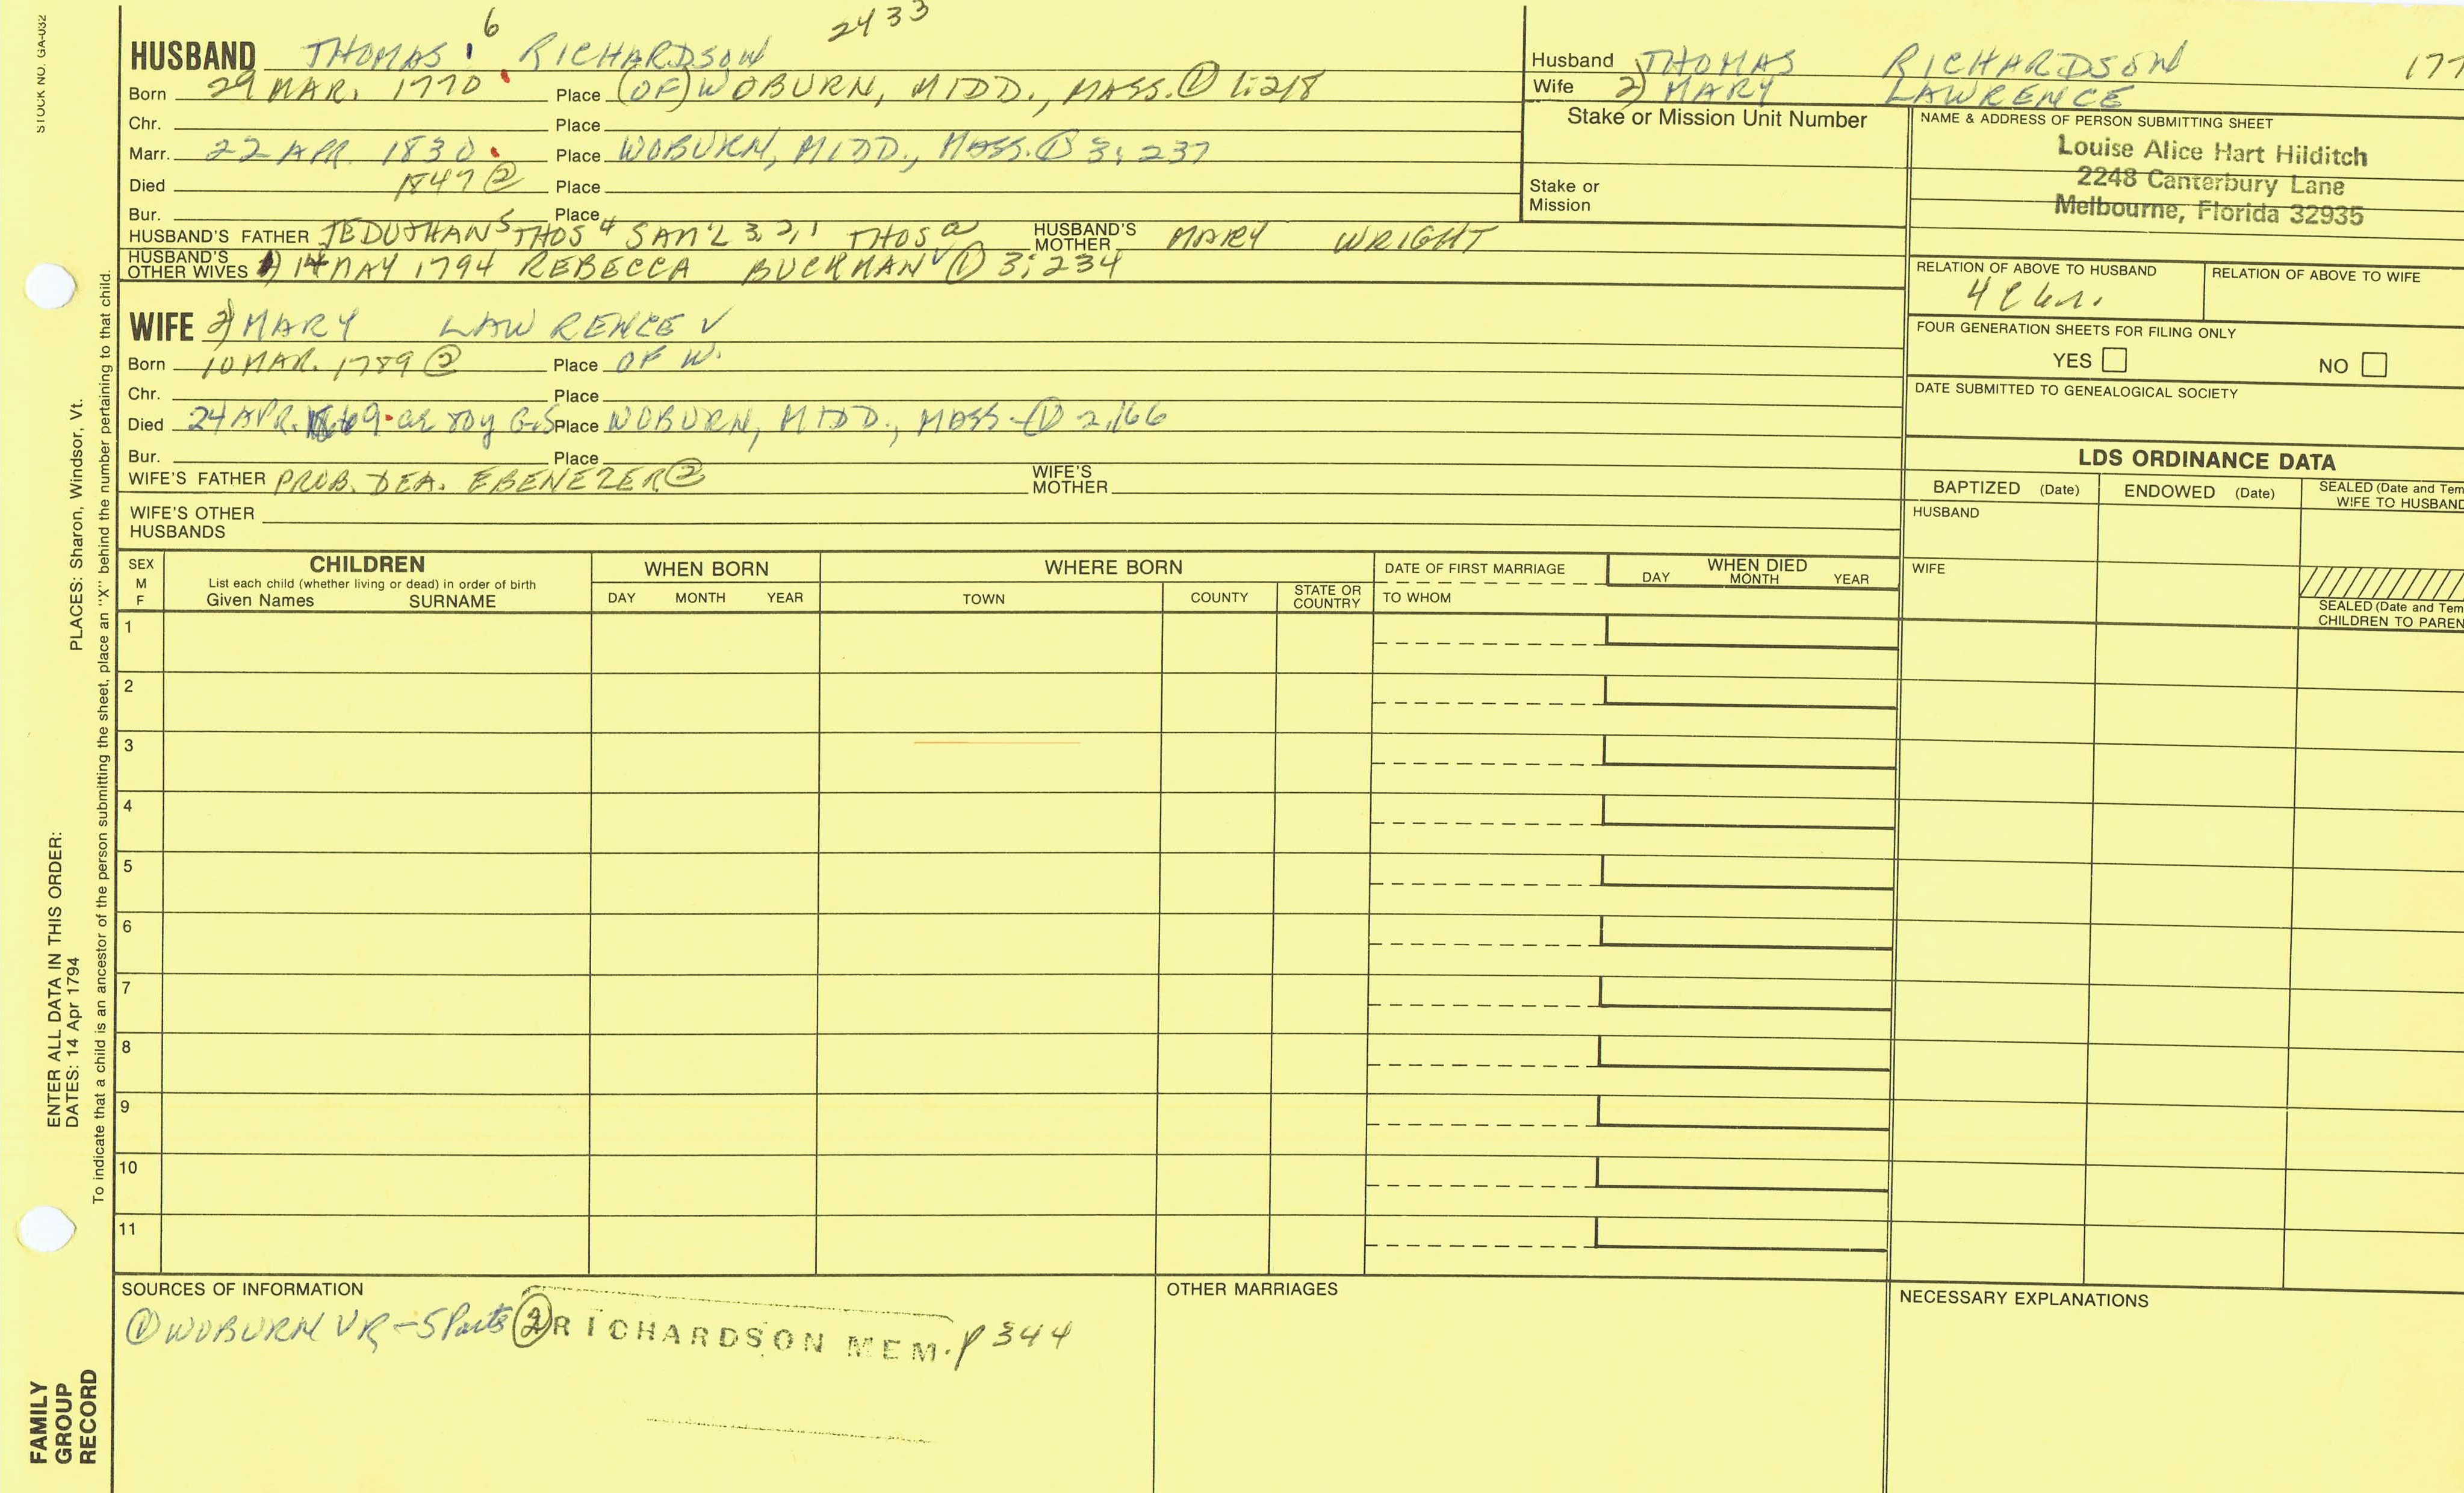 STOCK NO. GA-032
6
2433
HUSBAND THOMAS RICHARDSON
Born 29 MAR. 1770 Place (OF) WOBURN, MIDD., MASS. ① 1:218
Chr. Place
Marr. 22 APR. 1830 Place WOBURN, MIDD., MASS. ① 3:237
Died 1847 ② Place
Bur. Place
HUSBAND'S FATHER JEDUTHAN 5 THOS 4 SAM'L 3, 2, 1 THOS HUSBAND'S MOTHER MARY WRIGHT
HUSBAND'S OTHER WIVES 1) 14 MAY 1794 REBECCA BUCKMAN ✓ ① 3:234
WIFE 2) MARY LAWRENCE ✓
Born 10 MAR. 1789 ② Place OF W.
Chr. Place
Died 24 APR. 1869 ae 80y G.S. Place WOBURN, MIDD., MASS. ① 2,166
Bur. Place
WIFE'S FATHER PROB. DEA. EBENEZER ② WIFE'S MOTHER
WIFE'S OTHER HUSBANDS
Husband THOMAS RICHARDSON 177
Wife 2) MARY LAWRENCE
Stake or Mission Unit Number
Stake or Mission
NAME & ADDRESS OF PERSON SUBMITTING SHEET
Louise Alice Hart Hilditch
2248 Canterbury Lane
Melbourne, Florida 32935
RELATION OF ABOVE TO HUSBAND RELATION OF ABOVE TO WIFE
FOUR GENERATION SHEETS FOR FILING ONLY
YES NO
DATE SUBMITTED TO GENEALOGICAL SOCIETY
LDS ORDINANCE DATA
BAPTIZED (Date) ENDOWED (Date) SEALED (Date and Tem
WIFE TO HUSBAND
HUSBAND
WIFE
SEALED (Date and Tem
CHILDREN TO PAREN
SEX M F
CHILDREN
List each child (whether living or dead) in order of birth
Given Names SURNAME
WHEN BORN
DAY MONTH YEAR
WHERE BORN
TOWN COUNTY STATE OR COUNTRY
DATE OF FIRST MARRIAGE
TO WHOM
WHEN DIED
DAY MONTH YEAR
1
2
3
4
5
6
7
8
9
10
11
SOURCES OF INFORMATION
① WOBURN VR - 5 Parts ② RICHARDSON MEM. P 344
OTHER MARRIAGES
NECESSARY EXPLANATIONS
ENTER ALL DATA IN THIS ORDER:
DATES: 14 Apr 1794
PLACES: Sharon, Windsor, Vt.
To indicate that a child is an ancestor of the person submitting the sheet, place an "X" behind the number pertaining to that child.
FAMILY
GROUP
RECORD